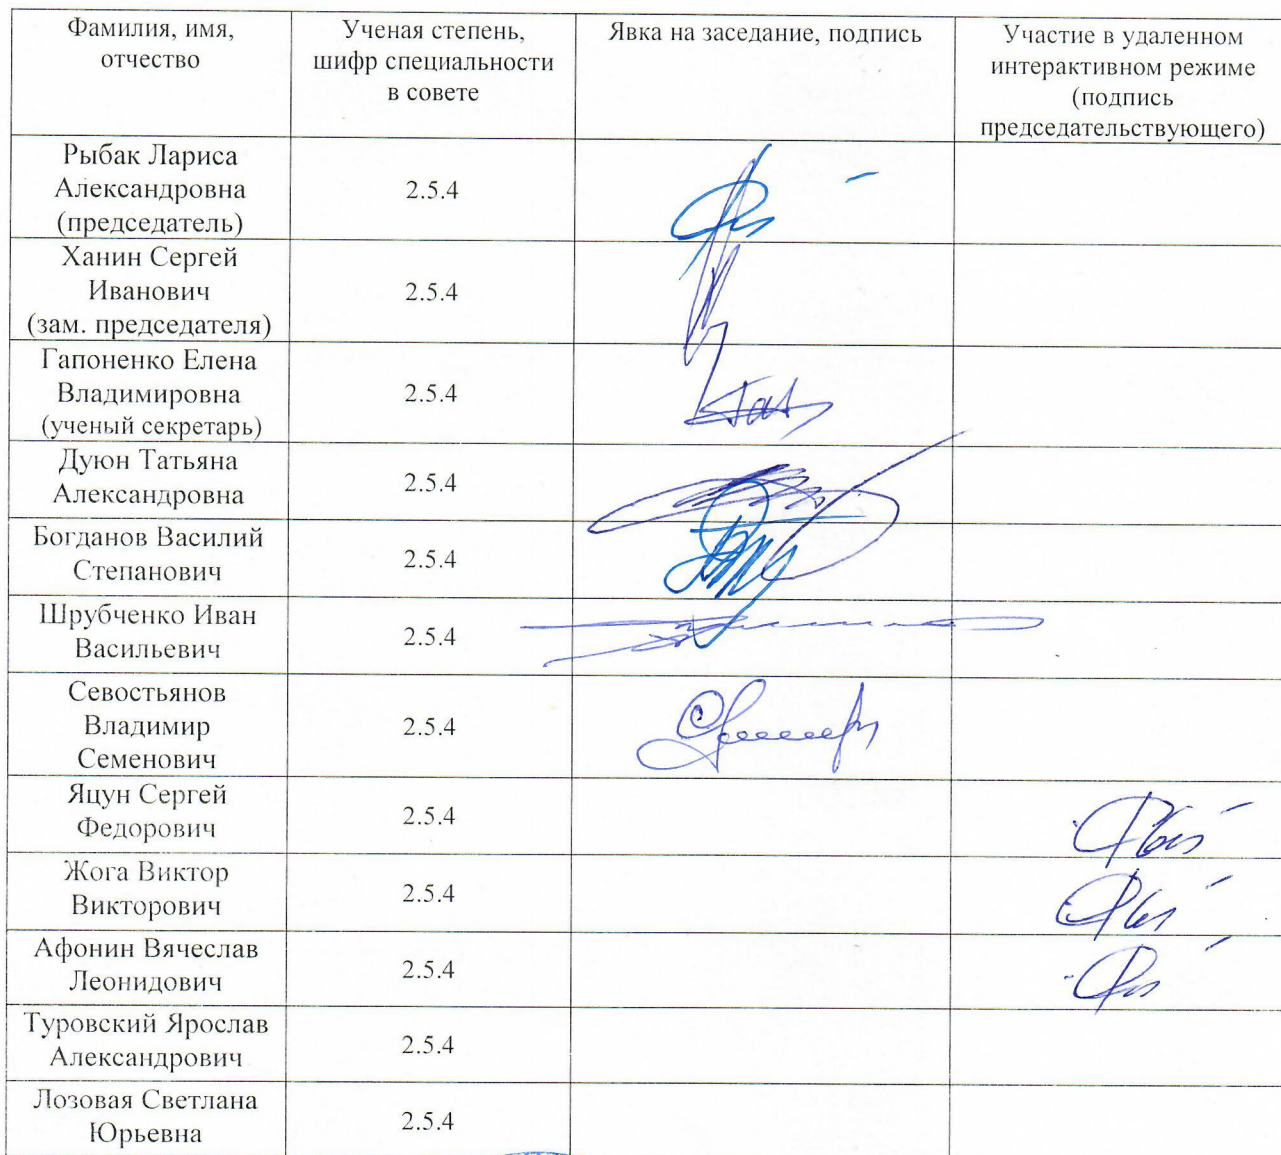 Фамилия, имя,
отчество
Ученая степень,
шифр специальности
в совете
Явка на заседание, подпись
Участие в удаленном
интерактивном режиме
(подпись
председательствующего)
Рыбак Лариса
Александровна
(председатель)
2.5.4
Ханин Сергей
Иванович
(зам. председателя)
2.5.4
Гапоненко Елена
Владимировна
(ученый секретарь)
2.5.4
Дуюн Татьяна
Александровна
2.5.4
Богданов Василий
Степанович
2.5.4
Шрубченко Иван
Васильевич
2.5.4
Севостьянов
Владимир
Семенович
2.5.4
Яцун Сергей
Федорович
2.5.4
Жога Виктор
Викторович
2.5.4
Афонин Вячеслав
Леонидович
2.5.4
Туровский Ярослав
Александрович
2.5.4
Лозовая Светлана
Юрьевна
2.5.4